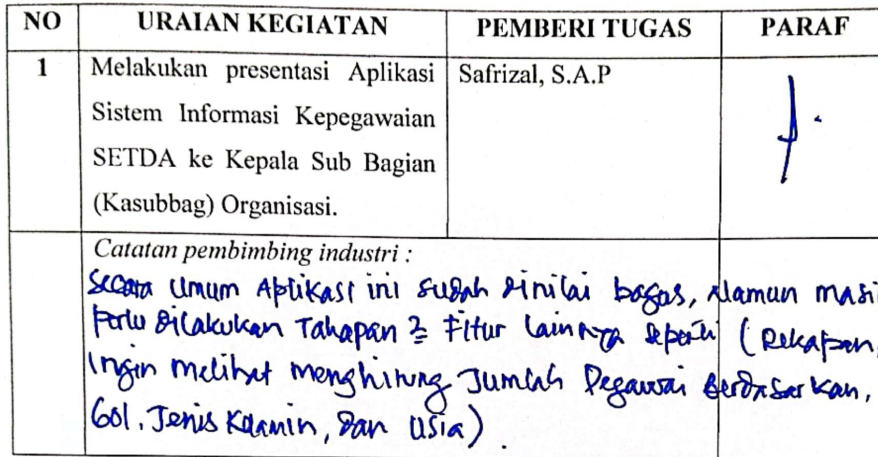 NO URAIAN KEGIATAN PEMBERI TUGAS PARAF
1 Melakukan presentasi Aplikasi Safrizal, S.A.P
Sistem Informasi Kepegawaian
SETDA ke Kepala Sub Bagian
(Kasubbag) Organisasi.
Catatan pembimbing industri :
Secara Umum Aplikasi ini sudah dinilai bagus, Namun masi
perlu dilakukan Tahapan 2 Fitur lainnya seperti (Rekapan,
Ingin melihat menghitung Jumlah Pegawai berdasarkan,
Gol, Jenis Kelamin, dan Usia).